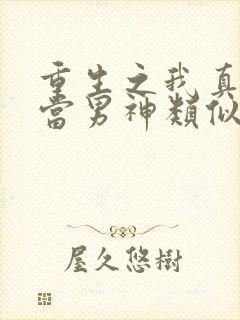 重生之我真
當男神類似
屋久悠樹